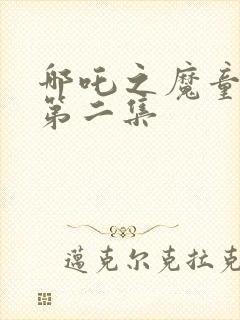 邮吒之魔童
第二集
蔼克尔克拉克